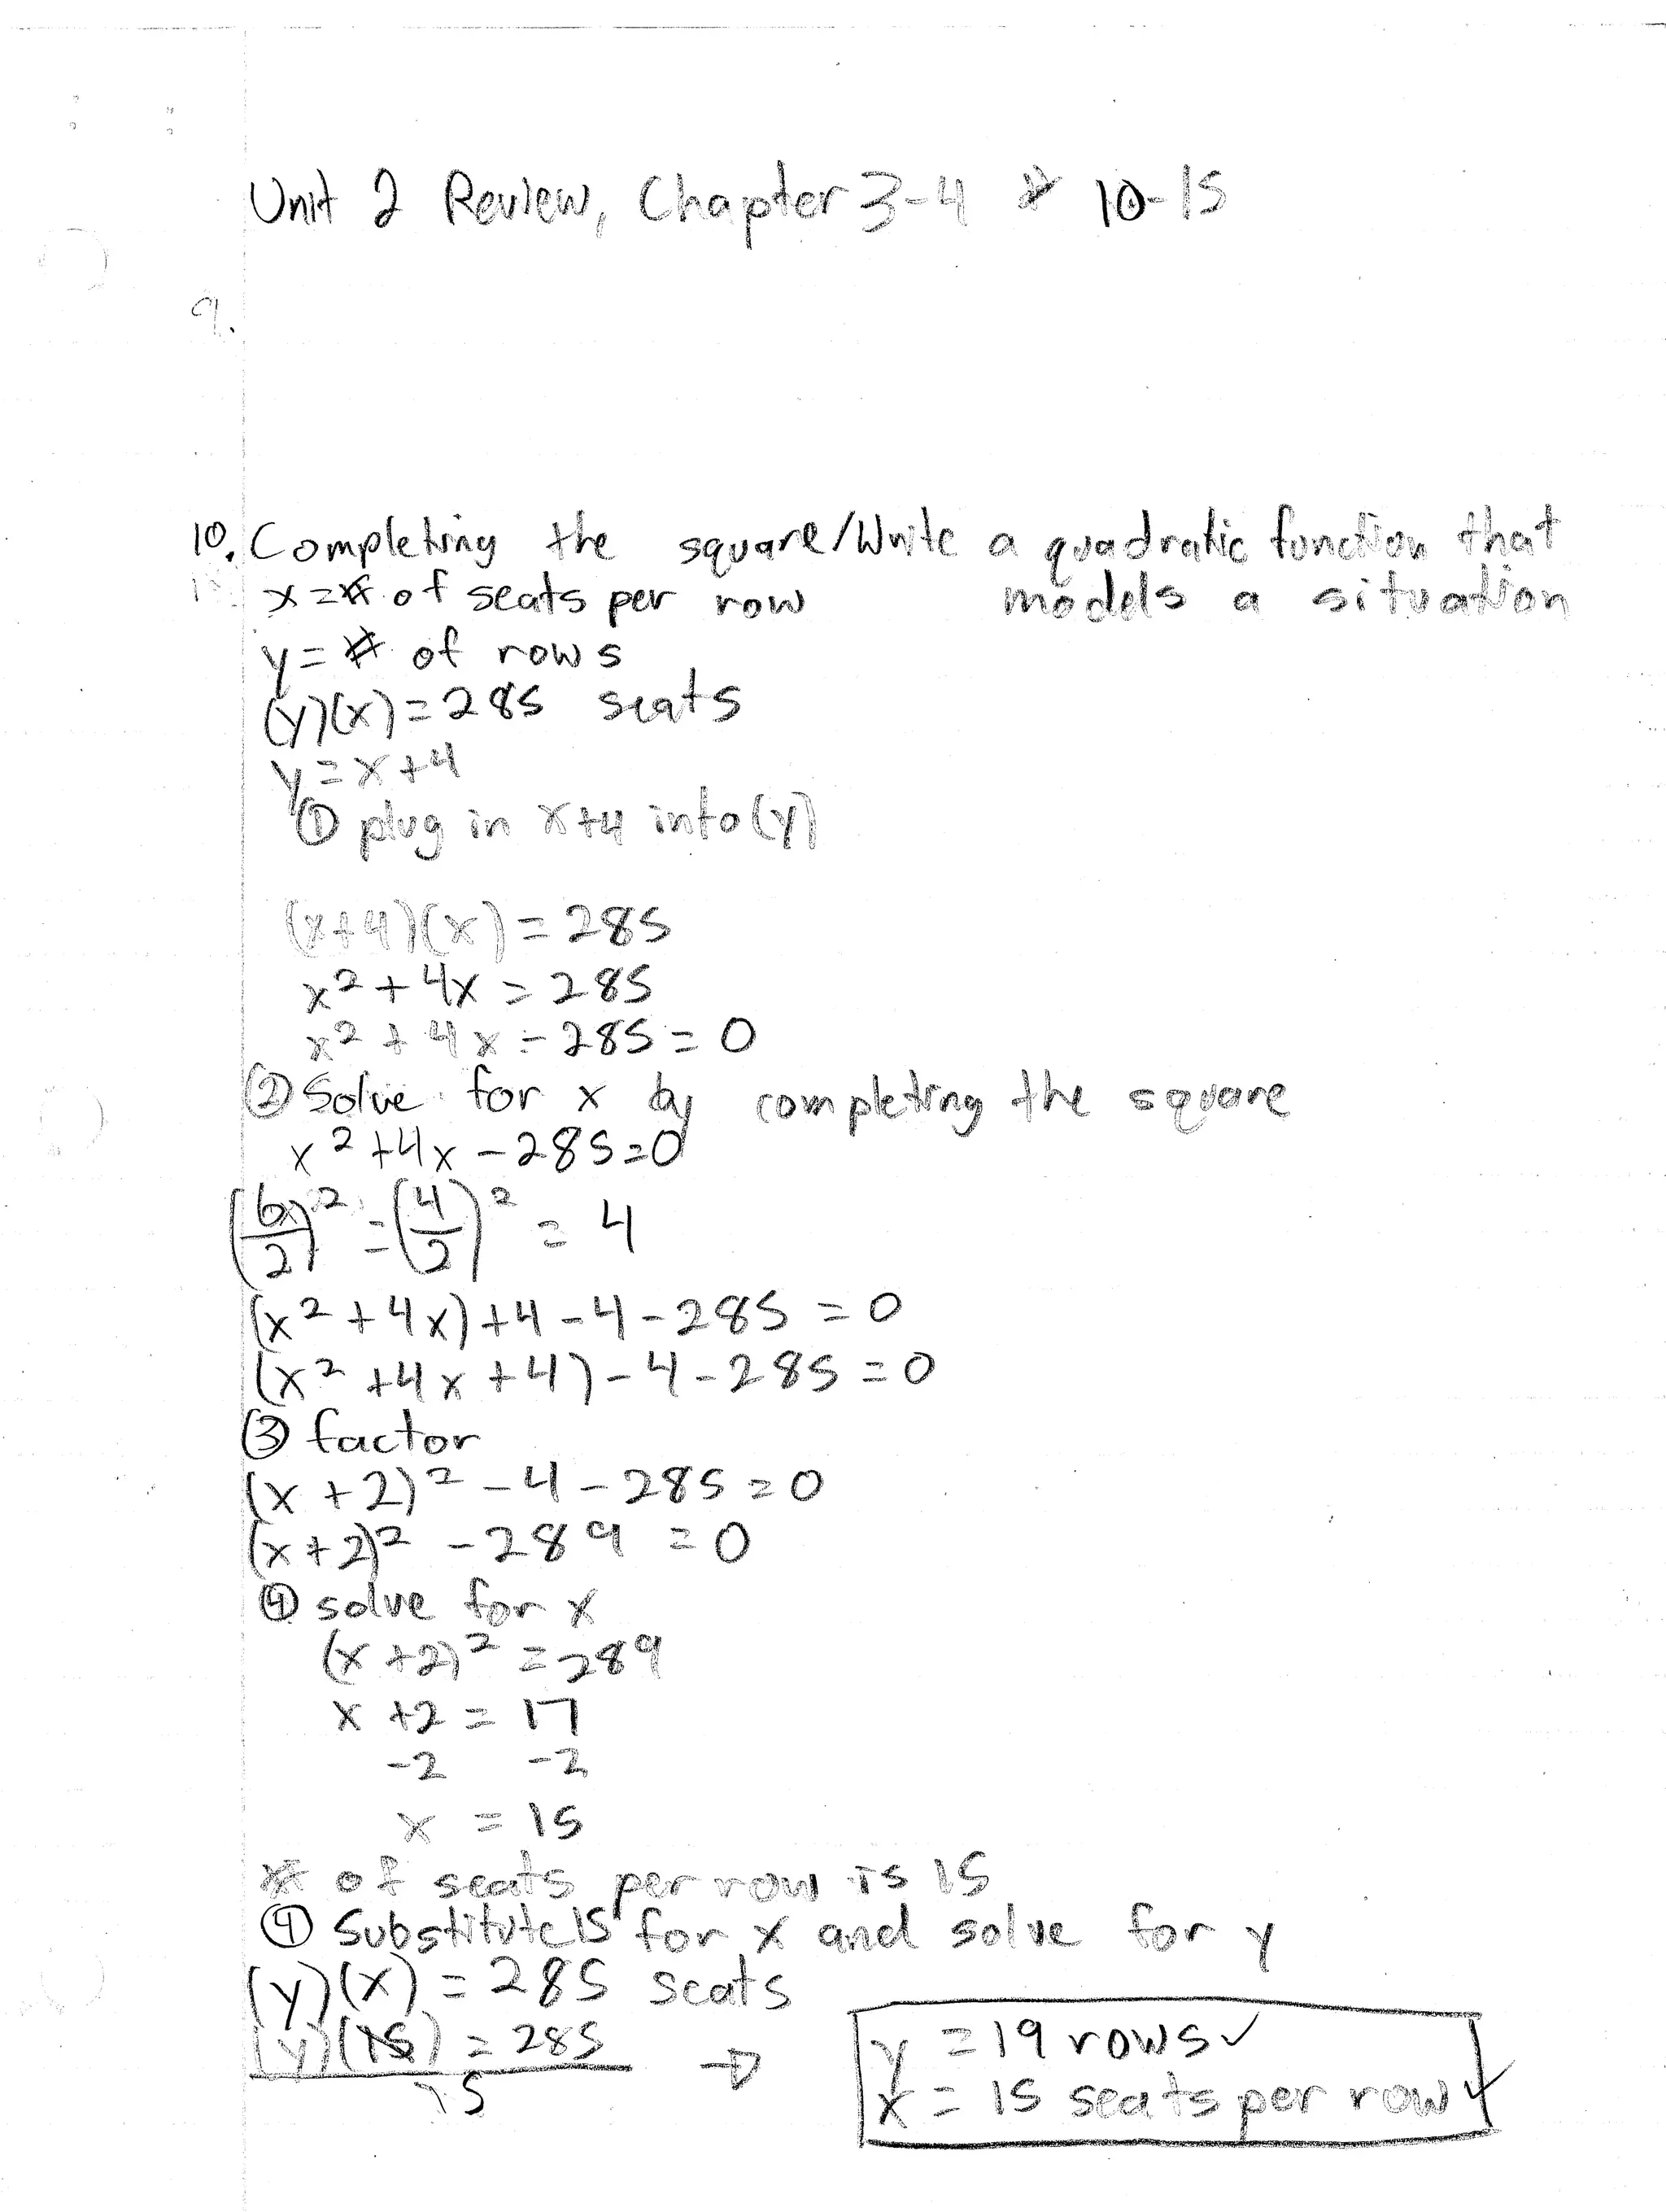 Unit 2 Review, Chapter 3-4 # 10-15
9.
10. Completing the square/Write a quadratic function that
models a situation
x = # of seats per row
y = # of rows
(y)(x) = 285 seats
y = x + 4
① plug in x+4 into (y)
(x+4)(x) = 285
x² + 4x = 285
x² + 4x - 285 = 0
② Solve for x by completing the square
x² + 4x - 285 = 0
(b/2)² = (4/2)² = 4
(x² + 4x) + 4 - 4 - 285 = 0
(x² + 4x + 4) - 4 - 285 = 0
③ factor
(x + 2)² - 4 - 285 = 0
(x + 2)² - 289 = 0
④ solve for x
(x + 2)² = 289
x + 2 = 17
-2 -2
x = 15
# of seats per row is 15
④ Substitute 15 for x and solve for y
(y)(x) = 285 seats
(y)(15) = 285
15
→
y = 19 rows ✓
x = 15 seats per row ✓